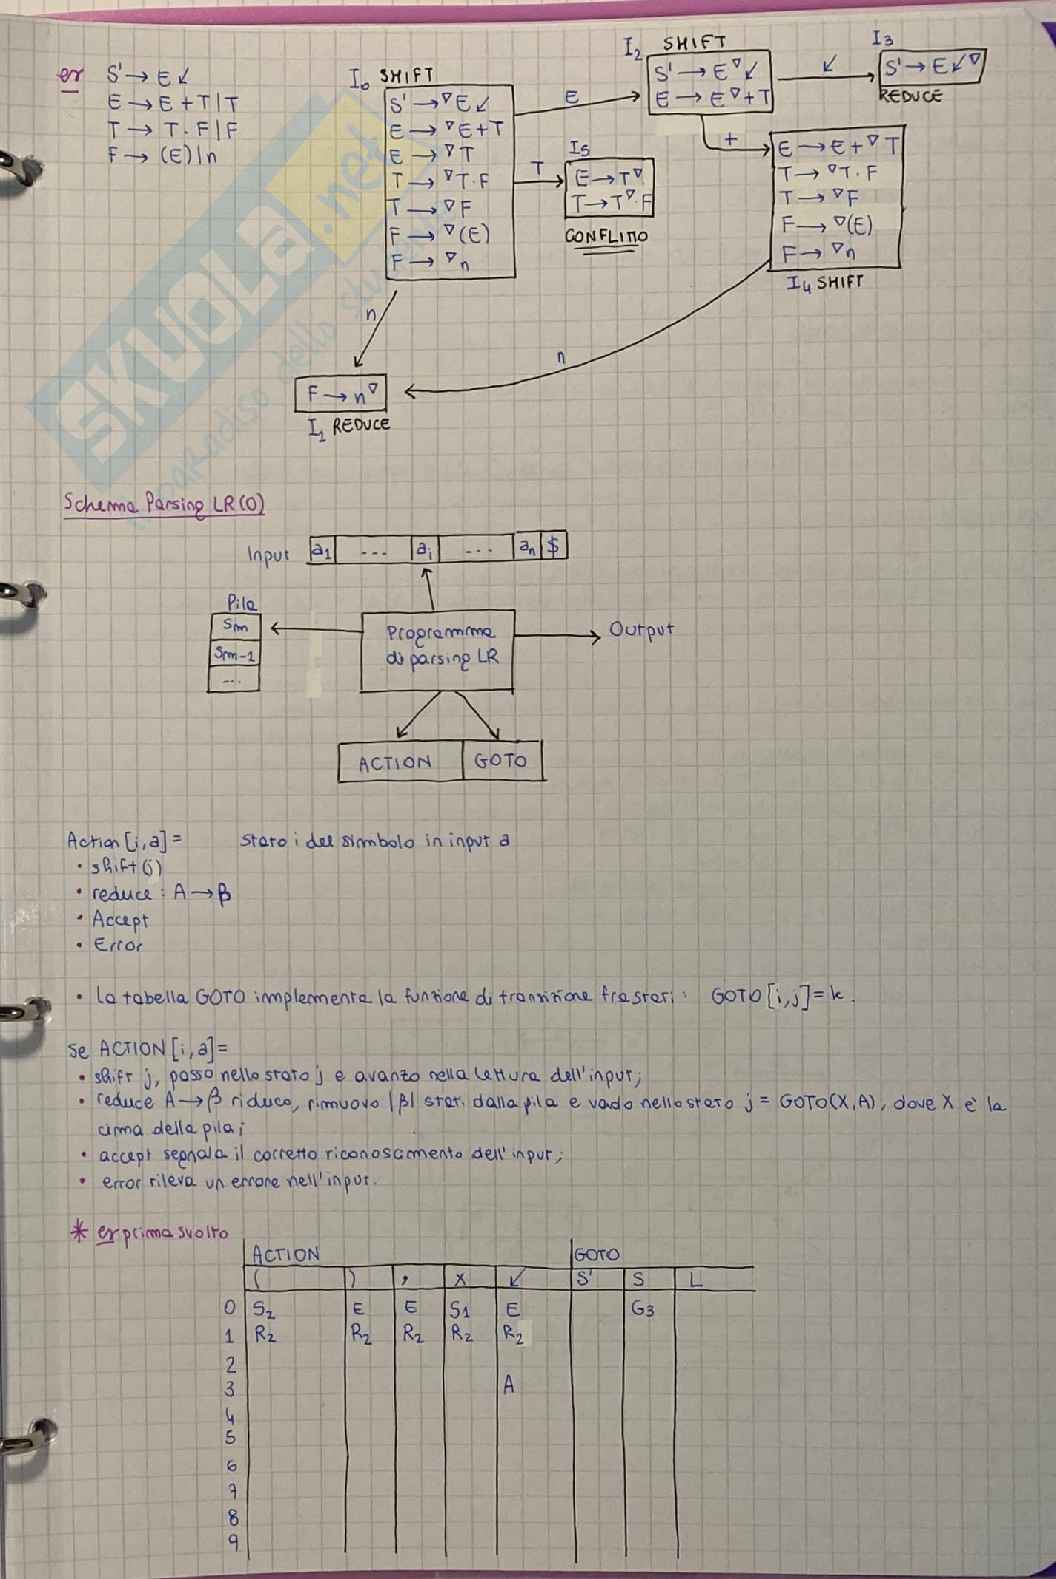 er S' → E ↙
E → E + T | T
T → T · F | F
F → (E) | n
I0 SHIFT
S' → ▽E↙
E → ▽E+T
E → ▽T
T → ▽T·F
T → ▽F
F → ▽(E)
F → ▽n
E
I2 SHIFT
S' → E▽↙
E → E▽+T
↙
I3
S' → E↙▽
REDUCE
T
I5
E → T▽
T → T▽·F
CONFLITTO
+
E → E+▽T
T → ▽T·F
T → ▽F
F → ▽(E)
F → ▽n
I4 SHIFT
n
n
F → n▽
I1 REDUCE
SKUOLA.net
Schema Parsing LR(0)
Input a1 ... ai ... an $
Pila
Sm
Sm-1
...
Programma
di parsing LR
Output
ACTION GOTO
Action[i,a]= stato i del simbolo in input a
• shift(j)
• reduce: A → β
• Accept
• Error
• la tabella GOTO implementa la funzione di transizione fra stati: GOTO[i,j]=k.
Se ACTION[i,a]=
• shift j, passo nello stato j e avanzo nella lettura dell'input;
• reduce A → β riduco, rimuovo |β| stati dalla pila e vado nello stato j = GOTO(X,A), dove X è la
cima della pila;
• accept segnala il corretto riconoscimento dell'input;
• error rileva un errore nell'input.
* er prima svolto
ACTION GOTO
( ) , x ↙ S' S L
0 S2 E E S1 E G3
1 R2 R2 R2 R2 R2
2
3 A
4
5
6
7
8
9